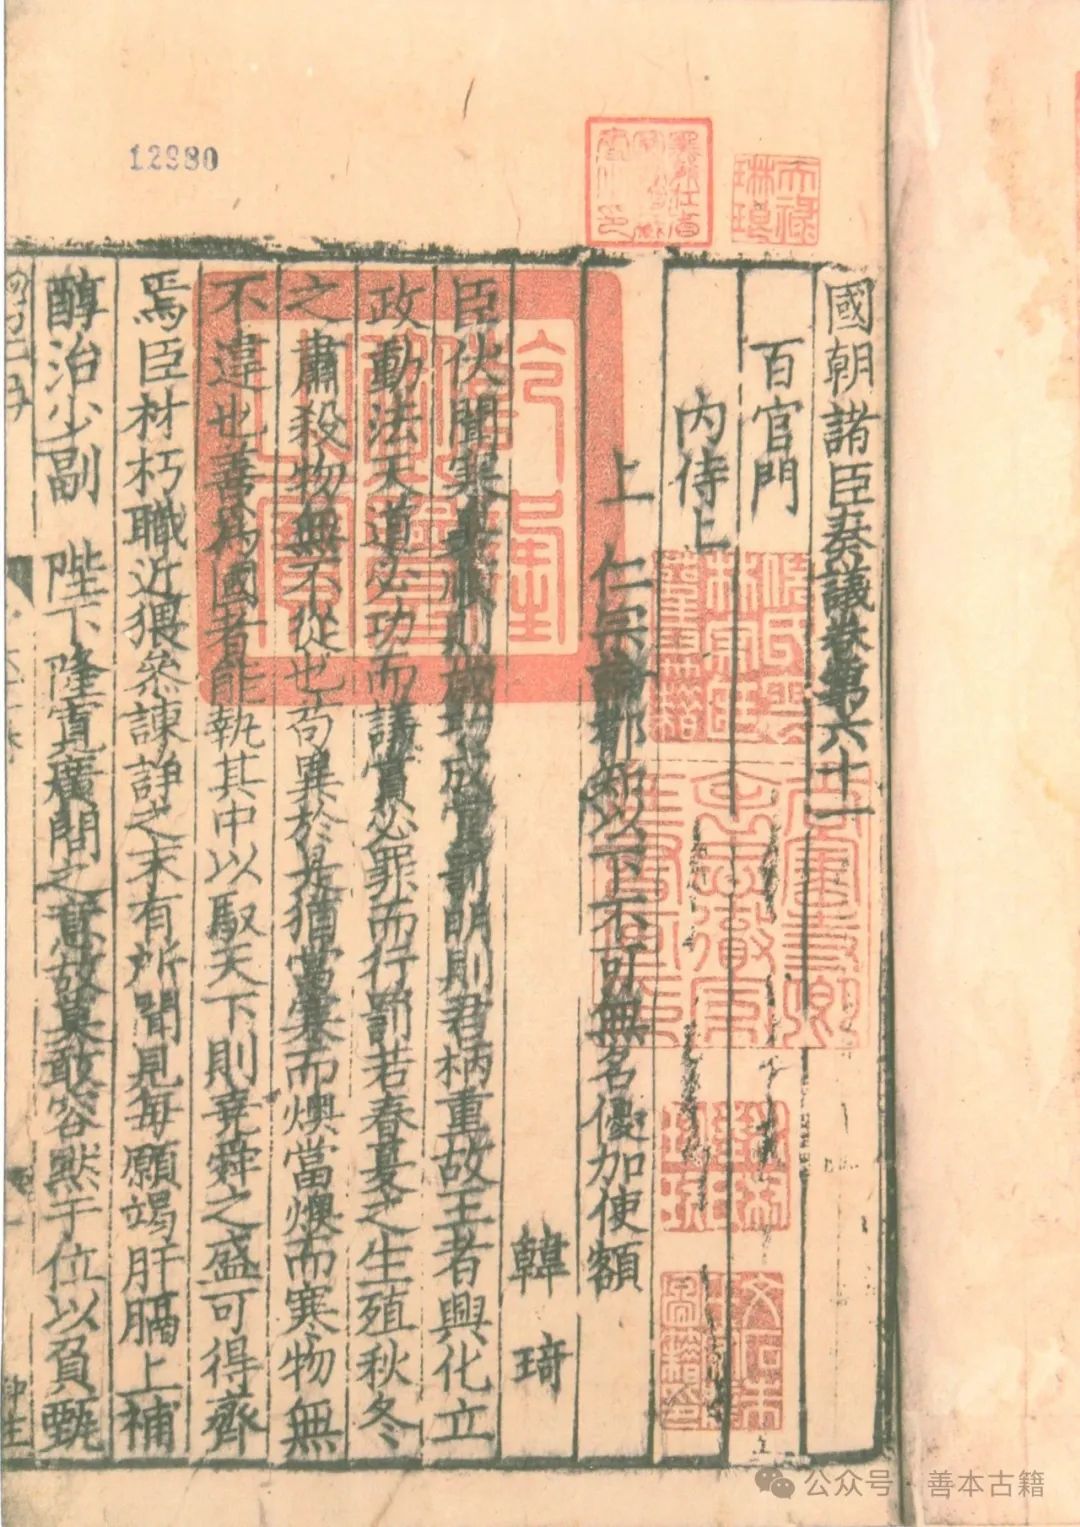 國朝諸臣奏議卷第六十一
百官門
内侍上
上 仁宗論都知以下不可無名優加使額
韓 琦
臣伏聞寒暑順則歲功成賞罰明則君柄重故王者興化立
政動法天道必功而議賞必罪而行罰若春夏之生殖秋冬
之肅殺物無不從也苟異於是猶當寒而燠當燠而寒物無
不違也善爲國者能執其中以馭天下則堯舜之盛可得齊
焉臣材朽職近猥叅諫諍之末有所聞見每願竭肝膈上補
醇治少副 陛下隆寬廣問之意故莫敢容默于位以負甄
12980
天祿琳琅
公众号·善本古籍